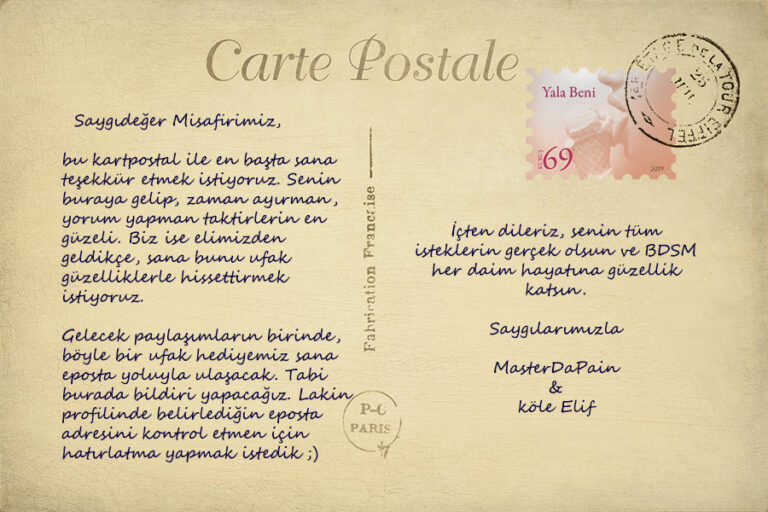 Carte Postale
Saygıdeğer Misafirimiz,
bu kartpostal ile en başta sana
teşekkür etmek istiyoruz. Senin
buraya gelip, zaman ayırman,
yorum yapman taktirlerin en
güzeli. Biz ise elimizden
geldikçe, sana bunu ufak
güzelliklerle hissettirmek
istiyoruz.
Gelecek paylaşımların birinde,
böyle bir ufak hediyemiz sana
eposta yoluyla ulaşacak. Tabi
burada bildiri yapacağız. Lakin
profilinde belirlediğin eposta
adresini kontrol etmen için
hatırlatma yapmak istedik ;)
Fabrication Française
P-C
PARIS
Yala Beni
KURUŞ
69
2019
1ER ETAGE DE LA TOUR EIFFEL
25
İçten dileriz, senin tüm
isteklerin gerçek olsun ve BDSM
her daim hayatına güzellik
katsın.
Saygılarımızla
MasterDaPain
&
köle Elif